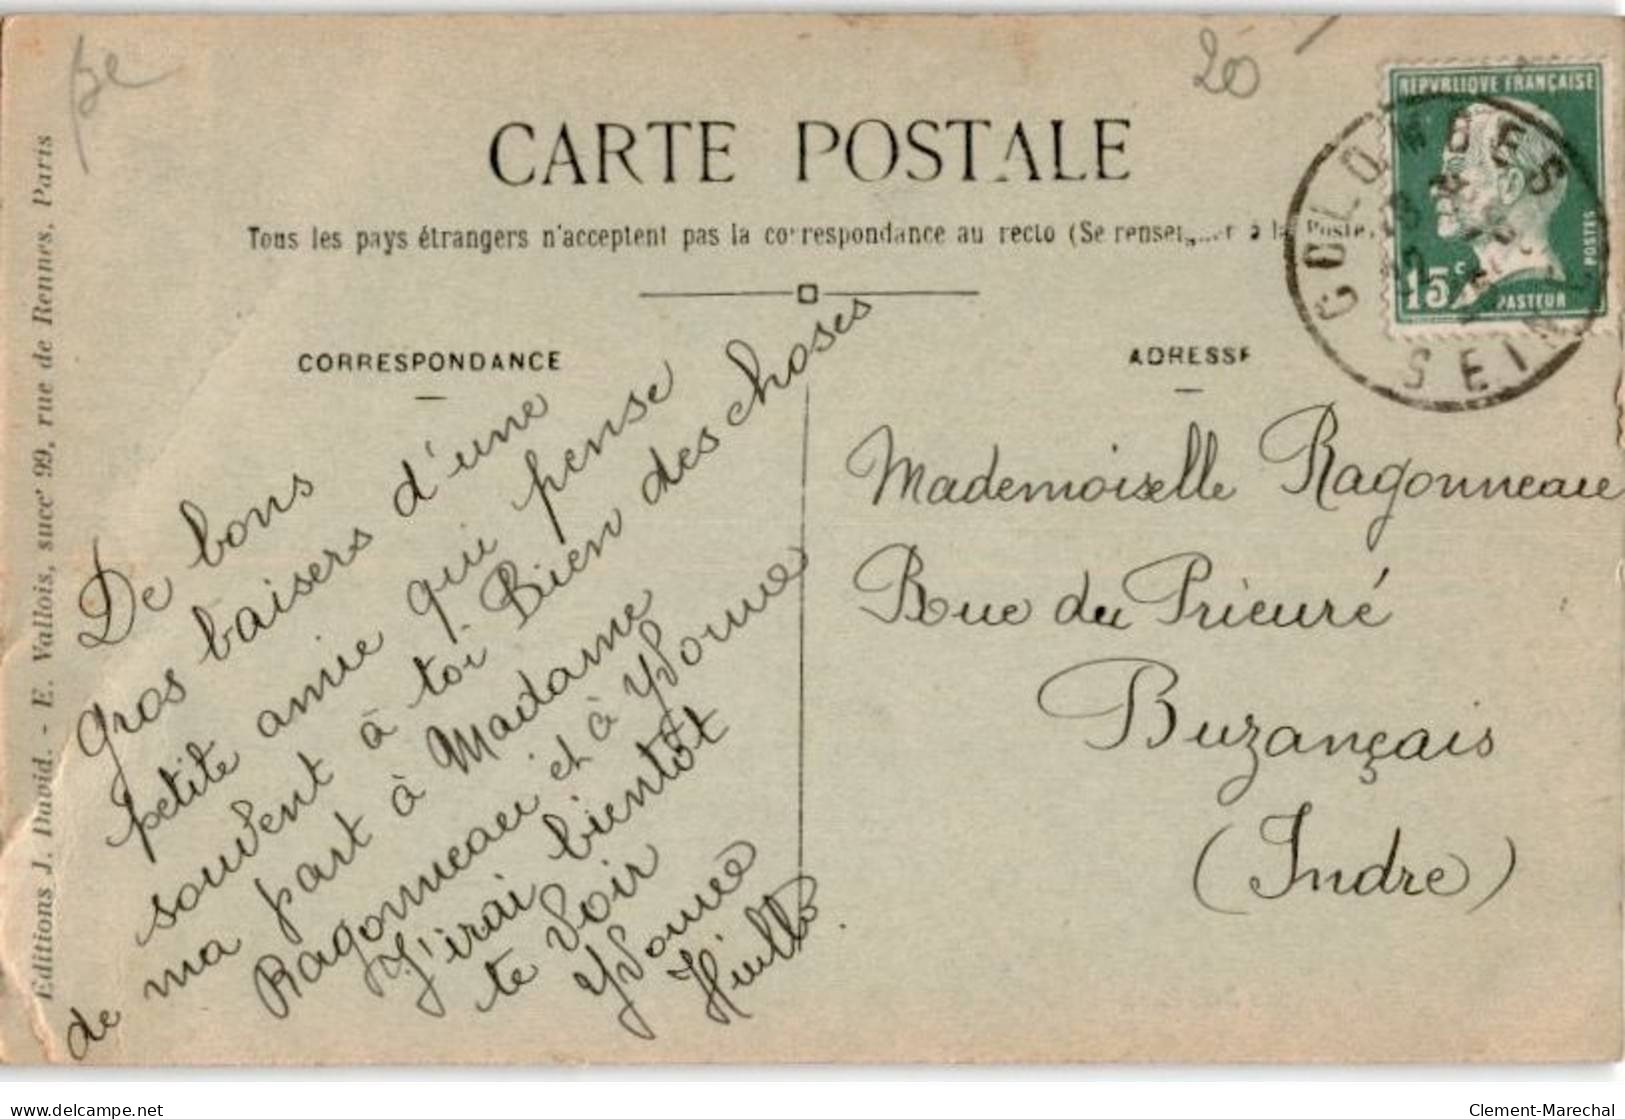 20
CARTE POSTALE
Tous les pays étrangers n'acceptent pas la correspondance au recto (Se renseigner à la Poste)
CORRESPONDANCE
De bons
gros baisers d'une
petite amie qui pense
souvent à toi. Bien des choses
de ma part à Madame
Ragonneau et à Yvonne
J'irai bientôt
te voir
Yvonne
ADRESSE
Mademoiselle Ragonneau
Rue du Prieuré
Buzançais
(Indre)
REPVBLIQVE FRANÇAISE
POSTES
15c
PASTEUR
COLOMBES
SEINE
Editions J. David. - E. Vallois, succr 99, rue de Rennes, Paris
delcampe.net
Clement-Marechal